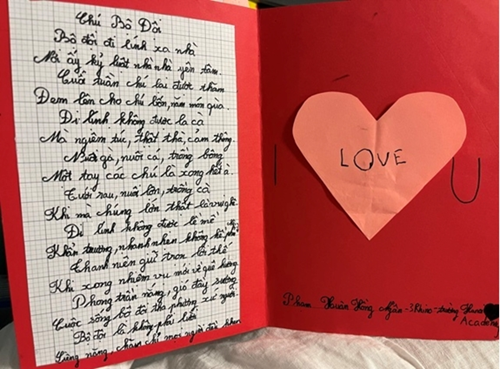 Chú Bộ Đội
Bộ đội đi lính xa nhà
Nơi ấy kỷ luật nhà nhà yên tâm.
Cuối tuần chú lại được thăm
Đem lên cho chú lốn, năm mớn quà.
Đi lính không được la cà
Mà nghiêm túc, thật thà, cảm thông.
Nuôi gà, nuôi cá, trồng bông
Một tay các chú là xong hết à
Tưới rau, nuôi lợn, trồng cà
Khi mà chúng lớn thật là vui ghê.
Đi lính không được lề mề
Khẩn trương, nhanh nhẹn không hề
Thanh niên giữ trọn lời thề
Khi xong nhiệm vụ mới về quê hương.
Phong trần nắng, gió đầy sương
Cuộc sống bộ đội tha phương xứ người
Bộ đội là không phải lười
Siêng năng, chăm chỉ mọi người
I LOVE U
Phạm Hoàng
Academy